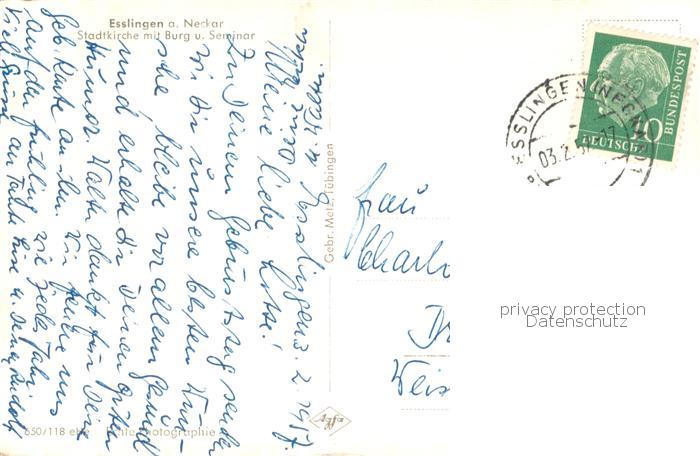 Esslingen a. Neckar
Stadtkirche mit Burg u. Seminar
Esslingen 3. 2. 1957.
Meine liebe Lotte!
Zu Deinem Geburtstag senden
wir Dir unsere besten Wün-
sche bleibe vor allem gesund
und erhalte Dir Deinen guten
Humor. Walter dankt für Deine
Geb. Karte an ihn. Wir freuen uns
auf den Frühling wie jedes Jahr.
Viele Grüsse
Gebr. Metz, Tübingen
650/118
Echte Photographie
Frau
Charl
ESSLINGEN (NECKAR)
03.2.5
17
10
DEUTSCHE
BUNDESPOST
Weis
privacy protection
Datenschutz